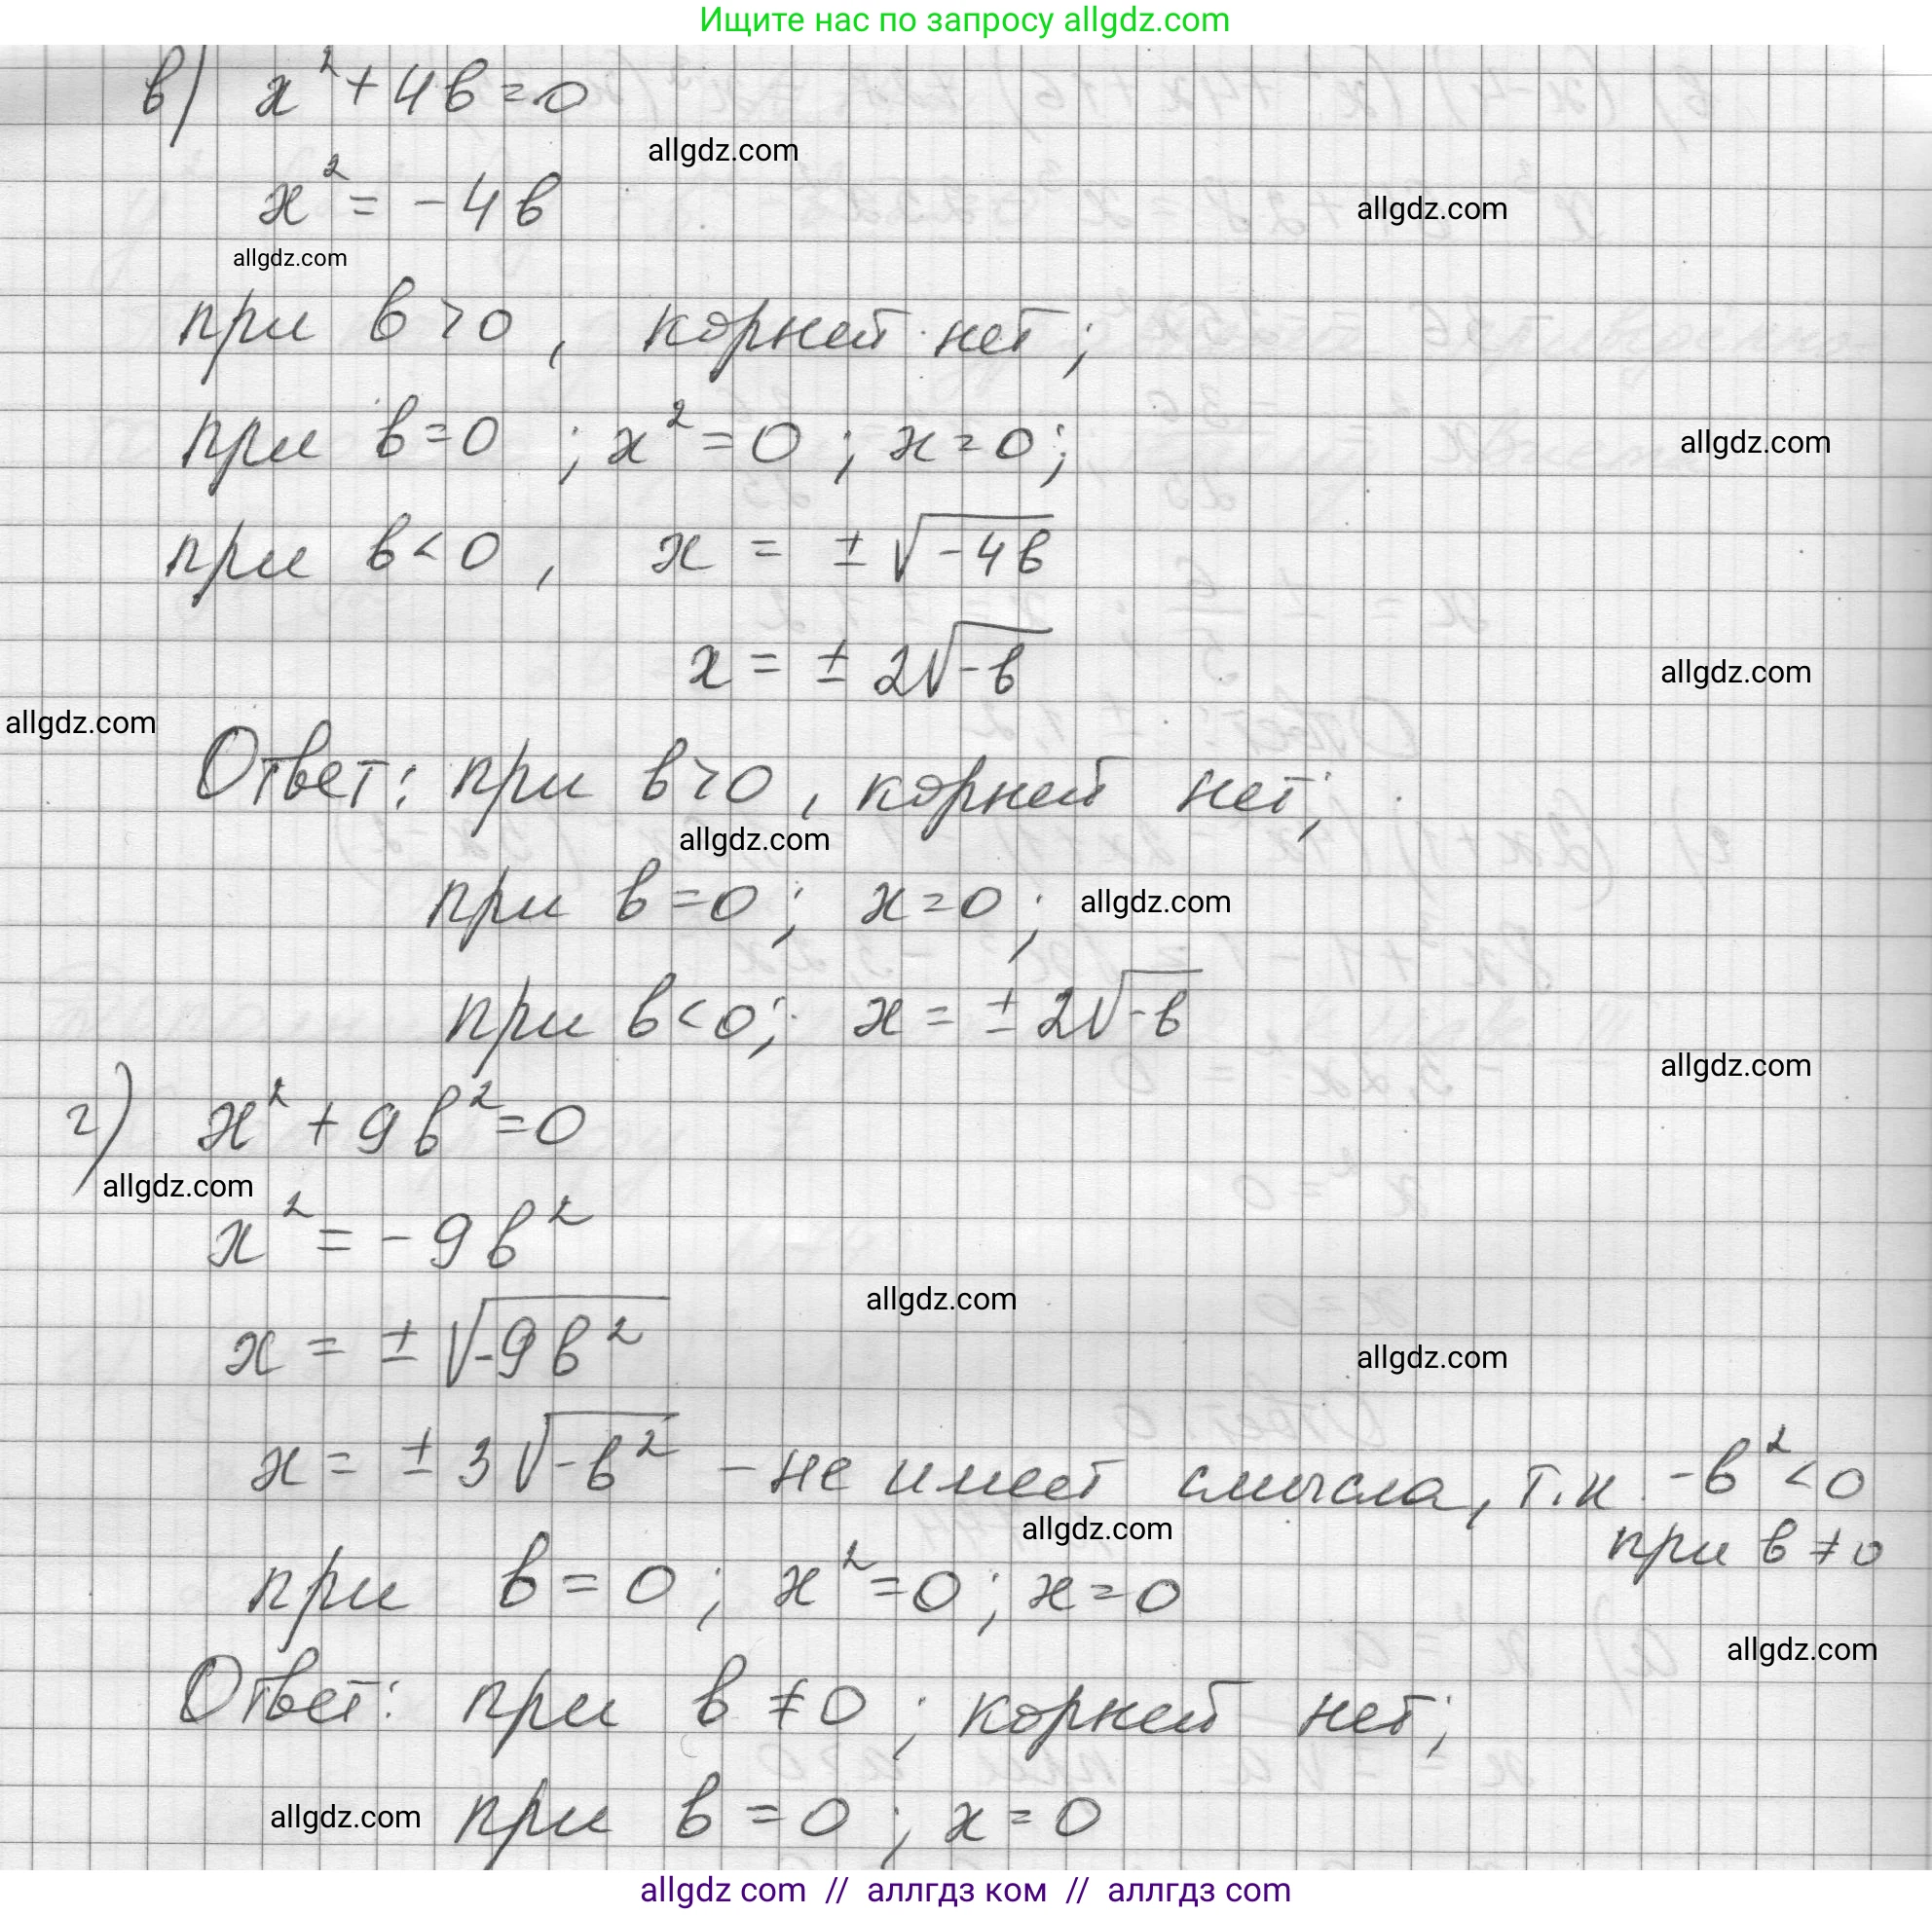 Ищите нас по запросу allgdz.com
в) x² + 4в = 0
allgdz.com
x² = -4в
allgdz.com
allgdz.com
при в > 0, корней нет;
при в = 0; x² = 0; x = 0;
allgdz.com
при в < 0, x = ± √-4в
x = ± 2√-в
allgdz.com
allgdz.com
Ответ: при в > 0, корней нет;
allgdz.com
при в = 0; x = 0;
allgdz.com
при в < 0; x = ± 2√-в
allgdz.com
г) x² + 9в² = 0
allgdz.com
x² = -9в²
allgdz.com
x = ± √-9в²
allgdz.com
x = ± 3√-в² - не имеет смысла, т.к. -в² < 0
allgdz.com
при в ≠ 0
при в = 0; x² = 0; x = 0
allgdz.com
Ответ: при в ≠ 0; корней нет;
allgdz.com
при в = 0; x = 0
allgdz com // аллгдз ком // аллгдз com